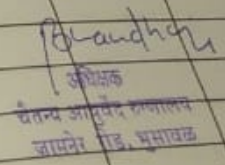 अधिक्षक
चैतन्य आयुर्वेद रुग्णालय
जामनेर रोड, भुसावळ